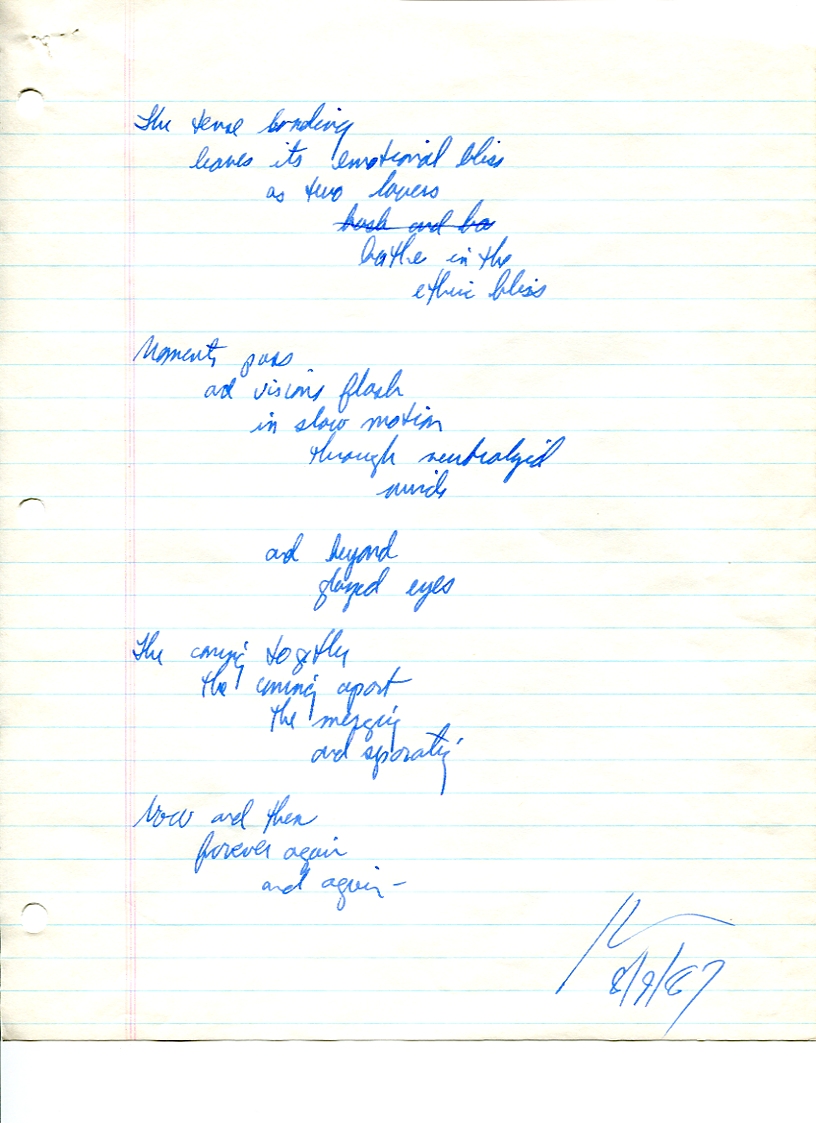 The tense bonding
leaves its emotional bliss
as two lovers
bask and ba
bathe in the
ethic bliss
Moments pass
and visions flash
in slow motion
through neutralyid
minds
and beyond
glazed eyes
The coming together
the coming apart
the merging
and separating
Now and then
forever again
and again-
8/9/87